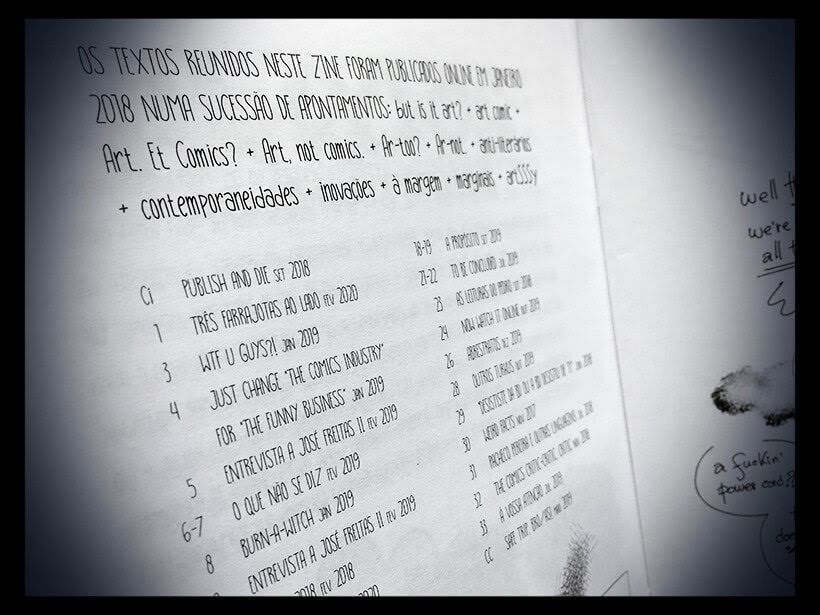 OS TEXTOS REUNIDOS NESTE ZINE FORAM PUBLICADOS ONLINE EM JANEIRO
2018 NUMA SUCESSÃO DE APONTAMENTOS: but is it art? + art comic +
Art. Et Comics? + Art, not comics. + Ar-ton? + Ar-not. + anti-literários
+ contemporaneidades + inovações + à margem + marginais + art$$$y
Ci PUBLISH AND DIE SET 2018
1 TRÊS FARRAJOTAS AO LADO FEV 2020
3 WTF U GUYS?! JAN 2019
4 JUST CHANGE "THE COMICS INDUSTRY"
FOR "THE FUNNY BUSINESS" JAN 2019
5 ENTREVISTA A JOSÉ FREITAS II FEV 2019
6-7 O QUE NÃO SE DIZ FEV 2019
8 BURN-A-WITCH JAN 2019
ENTREVISTA A JOSÉ FREITAS II FEV 2019
2018 FEV 2018
2020
18-19 A PROPÓSITO SET 2019
21-22 TO BE CONCLUDED 2019
23 AS LEITURAS DO PEDRO SET 2018
24 NOW WATCH IT ONLINE 2019
26 ABRESTRATOS 2019
28 OUTROS TURVOS 2019
29 "DESISTISTE DA BD OU A BD DESISTIU DE TI" JAN 2018
30 WEIRD FACTS NOV 2017
31 PACHECO PEREIRA E OUTRAS 2018
32 THE COMICS CRITIC-CRITIC CRITIC 2018
33 A VOSSA ATENÇÃO 2019
CC SAFE TRIP 2019
well
we're
all
a fuckin'
power cord?